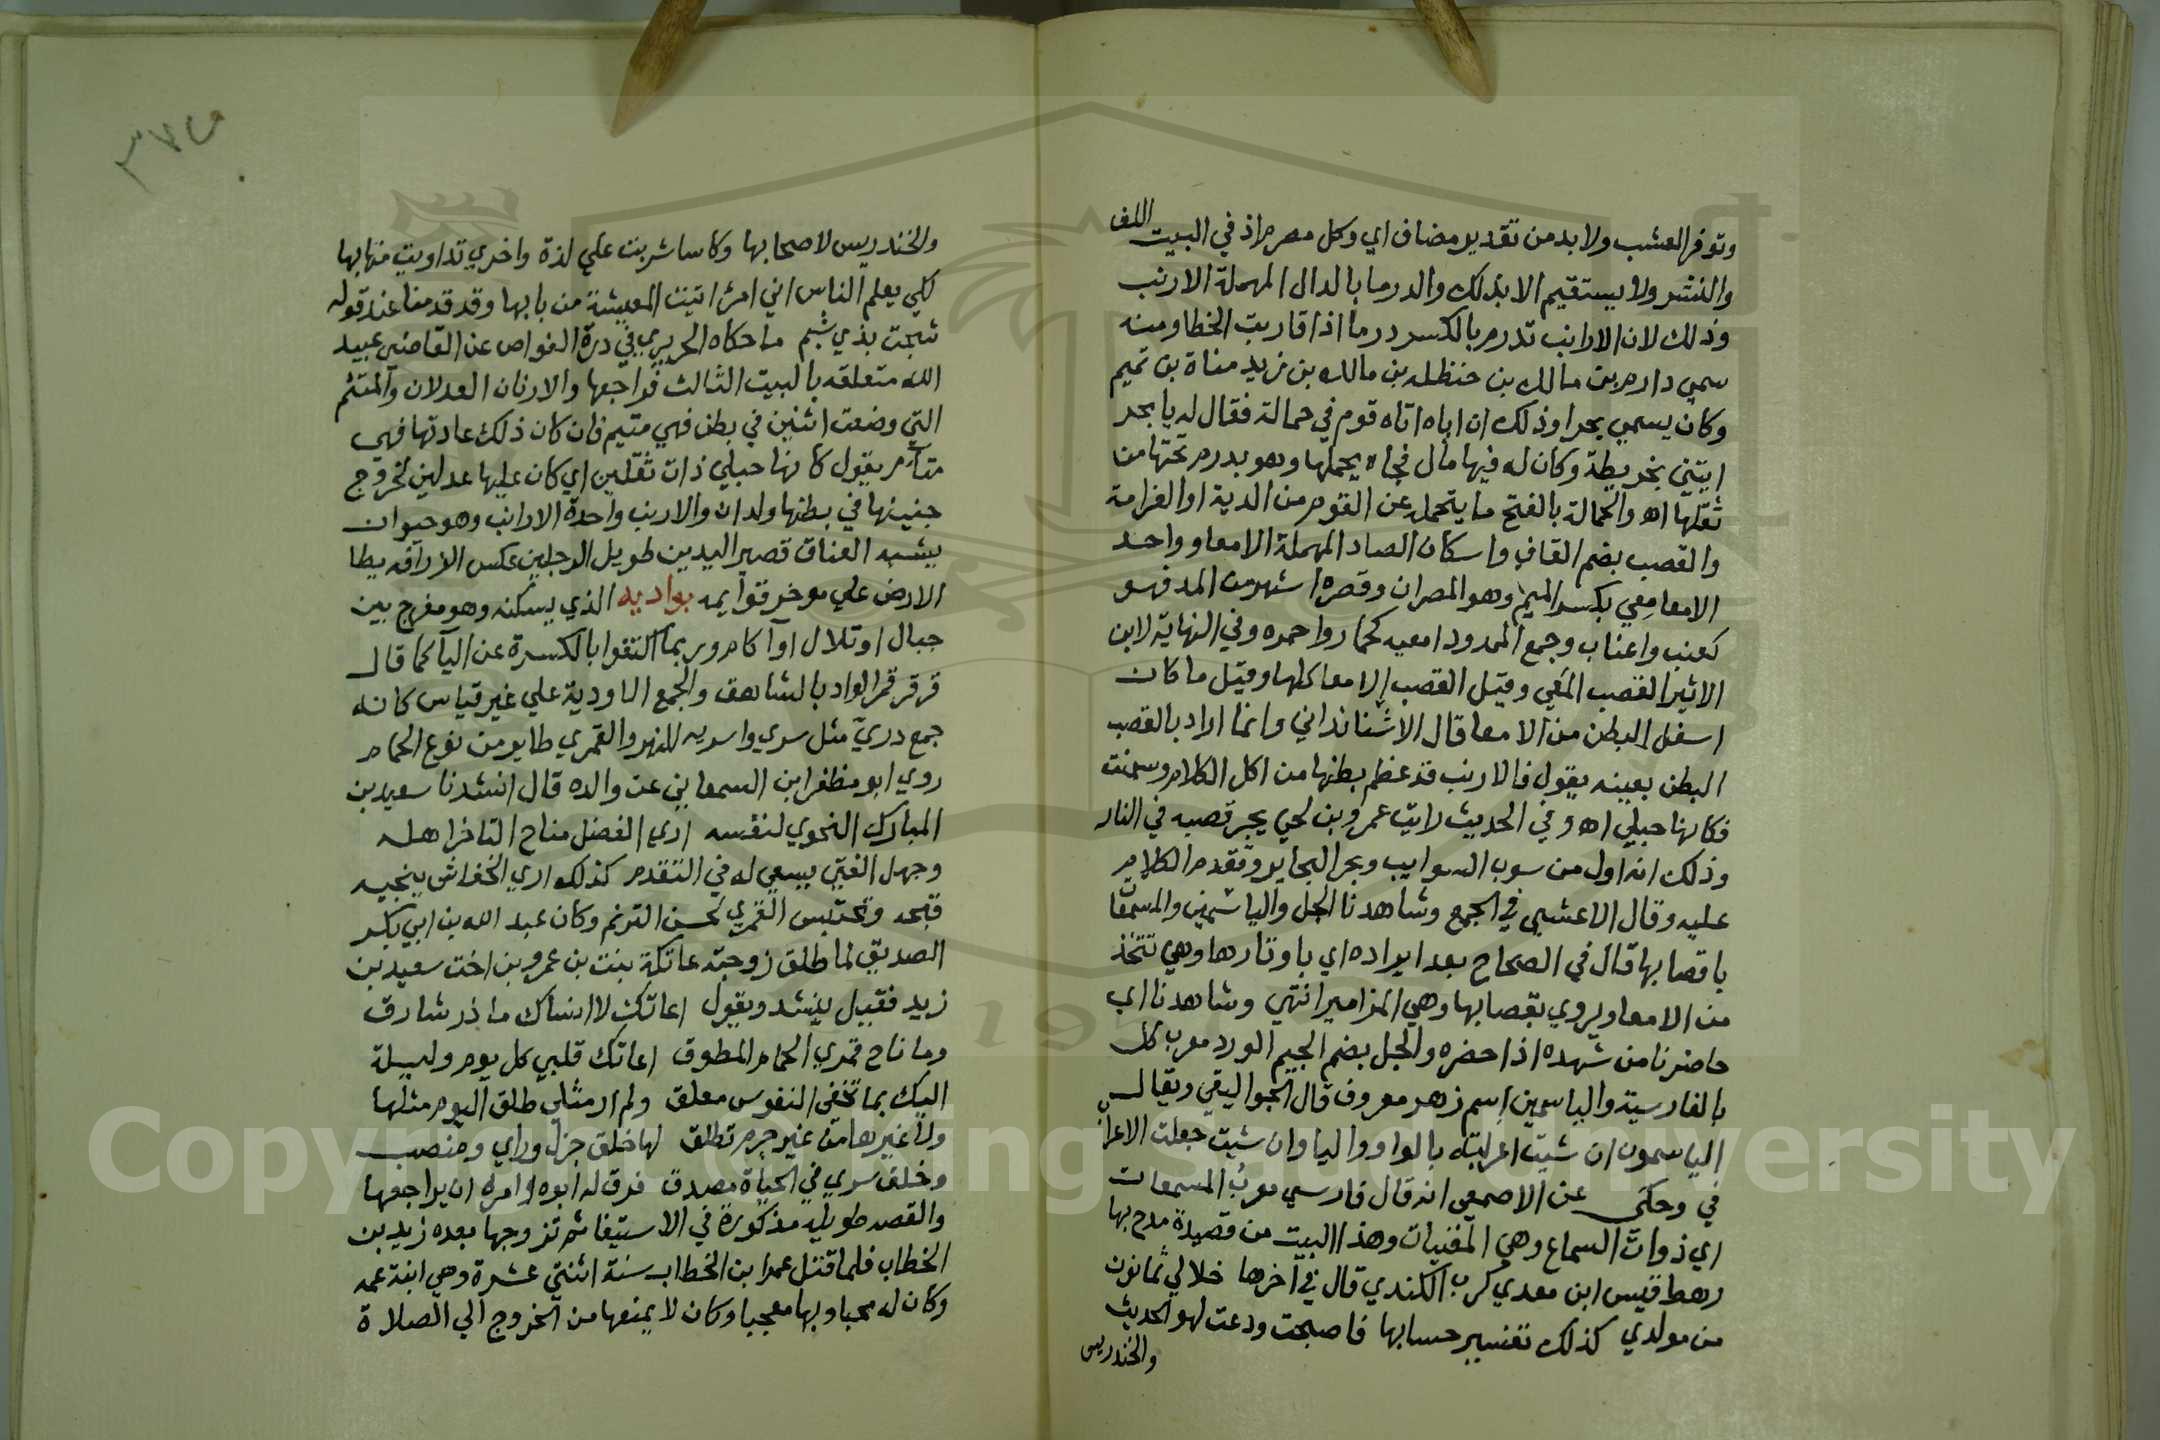 وتوفر العشب ولا بد من تقدير مضاف اي وكل مصرم اذ في البيت اللف
والنشر ولا يستقيم الا بذلك والدرما بالدال المهملة الارنب
وذلك لان الارانب تدرم بالكسر درما اذا قاربت الخطا ومنه
سمي دارم بن مالك بن حنظله بن مالك بن زيد مناة بن تميم
وكان يسمي بحرا وذلك ان اباه اتاه قوم في حمالة فقال له يا بحر
ايتني بخريطة وكان له فيها مال فجاه يحملها وهو يدرم تحتها من
ثقلها اه والحمالة بالفتح ما يتحمل عن القوم من الدية او الغرامة
والقصب بضم القاف واسكان الصاد المهملة الامعا وواحد
الامعا مِعي بكسر الميم وهو المصران وقصره اشهر من المد فهو
كعنب واعناب وجمع الممدود امعيه كحمار واحمره وفي النهاية لابن
الاثير القصب المعي وقيل القصب الامعا كلها وقيل ما كان
اسفل البطن من الامعا قال الاشنانداني وانما اراد بالقصب
البطن بعينه يقول فالارنب قد عظم بطنها من اكل الكلا وسمنت
فكانها حبلي اه وفي الحديث رايت عمرو بن لحي يجر قصبه في النار
وذلك انه اول من سوب السوايب وبحر البحاير وتقدم الكلام
عليه وقال الاعشي في الجمع وشاهدنا الجل والياسمين والمسمعات
باقصابها قال في الصحاح بعد ايراده اي باوتارها وهي تتخذ
من الامعا ويروي بقصابها وهي المزامير انتهي وشاهدنا اي
حاضرنا من شهده اذا حضره والجل بضم الجيم الورد معرب كل
بالفارسية والياسمين اسم زهر معروف قال الجواليقي ويقال
الياسمون ان شيت اعربته بالواو واليا وان شيت جعلت الاعراب
في وحكي عن الاصمعي انه قال فارسي معرب المسمعات
اي ذوات السماع وهي المغنيات وهذا البيت من قصيدة مدح بها
رهط قيس ابن معدي كرب الكندي قال في اخرها خلالي ثمانون
من مولدي كذلك تفسير حسابها فاصبحت ودعت لهو الحديث
والخندريس
والخندريس لاصحابها وكاسا شربت علي لذة واخري تداويت منها بها
لكي يعلم الناس اني امرؤ اتيت المعيشة من بابها وقد قدمنا عند قوله
شجت بذي شبم ما حكاه الحريري في درة الغواص عن القاضي عبيد
الله متعلقه بالبيت الثالث فراجعها والارنان العدلان والمتئم
التي وضعت اثنين في بطن فهي متيم فان كان ذلك عادتها فهي
متآم يقول كانها حبلي ذات ثقلين اي كان عليها عدلين لخروج
جنينها في بطنها ولدان والارنب واحدة الارانب وهو حيوان
يشبه العناق قصير اليدين طويل الرجلين عكس الزرافه يطا
الارض علي موخر قوايمه بواديه الذي يسكنه وهو مفرج بين
جبال او تلال او اكام وربما اكتفوا بالكسرة عن اليا كما قال
قرقر قمر الواد بالشاهق والجمع الاودية علي غير قياس كانه
جمع دري مثل سري واسريه للنهر والقمري طاير من نوع الحمام
روي ابو مظفر ابن السمعاني عن والده قال انشدنا سعيد بن
المبارك النحوي لنفسه اري الفضل مناح التاخر اهله
وجهل الغبي يسعي له في التقدم كذلك اري الخفاش ينجيه
قبحه وتحتبس القمري لحسن الترنم وكان عبد الله بن ابي بكر
الصديق لما طلق زوجته عاتكة بنت بن عمرو بن اخت سعيد بن
زيد فقيل ينشد ويقول اعاتك لا انساك ما ذر شارق
وما ناح قمري الحمام المطوق اعاتك قلبي كل يوم وليلة
اليك بما تخفي النفوس معلق ولم ار مثلي طلق اليوم مثلها
ولا غيرها من غير جرم تطلق لها خلق جزل وراي ومنصب
وخلق سري في الحياة مصدق فرق له ابوه وامره ان يراجعها
والقصه طويله مذكورة في الاستيغا ثم تزوجها بعده زيد بن
الخطاب فلما قتل عمر ابن الخطاب سنة اثنتي عشرة وهي ابنة عمه
وكان له محبا وبها معجبا وكان لا يمنعها من الخروج الي الصلاة
Copyright © King Saud University